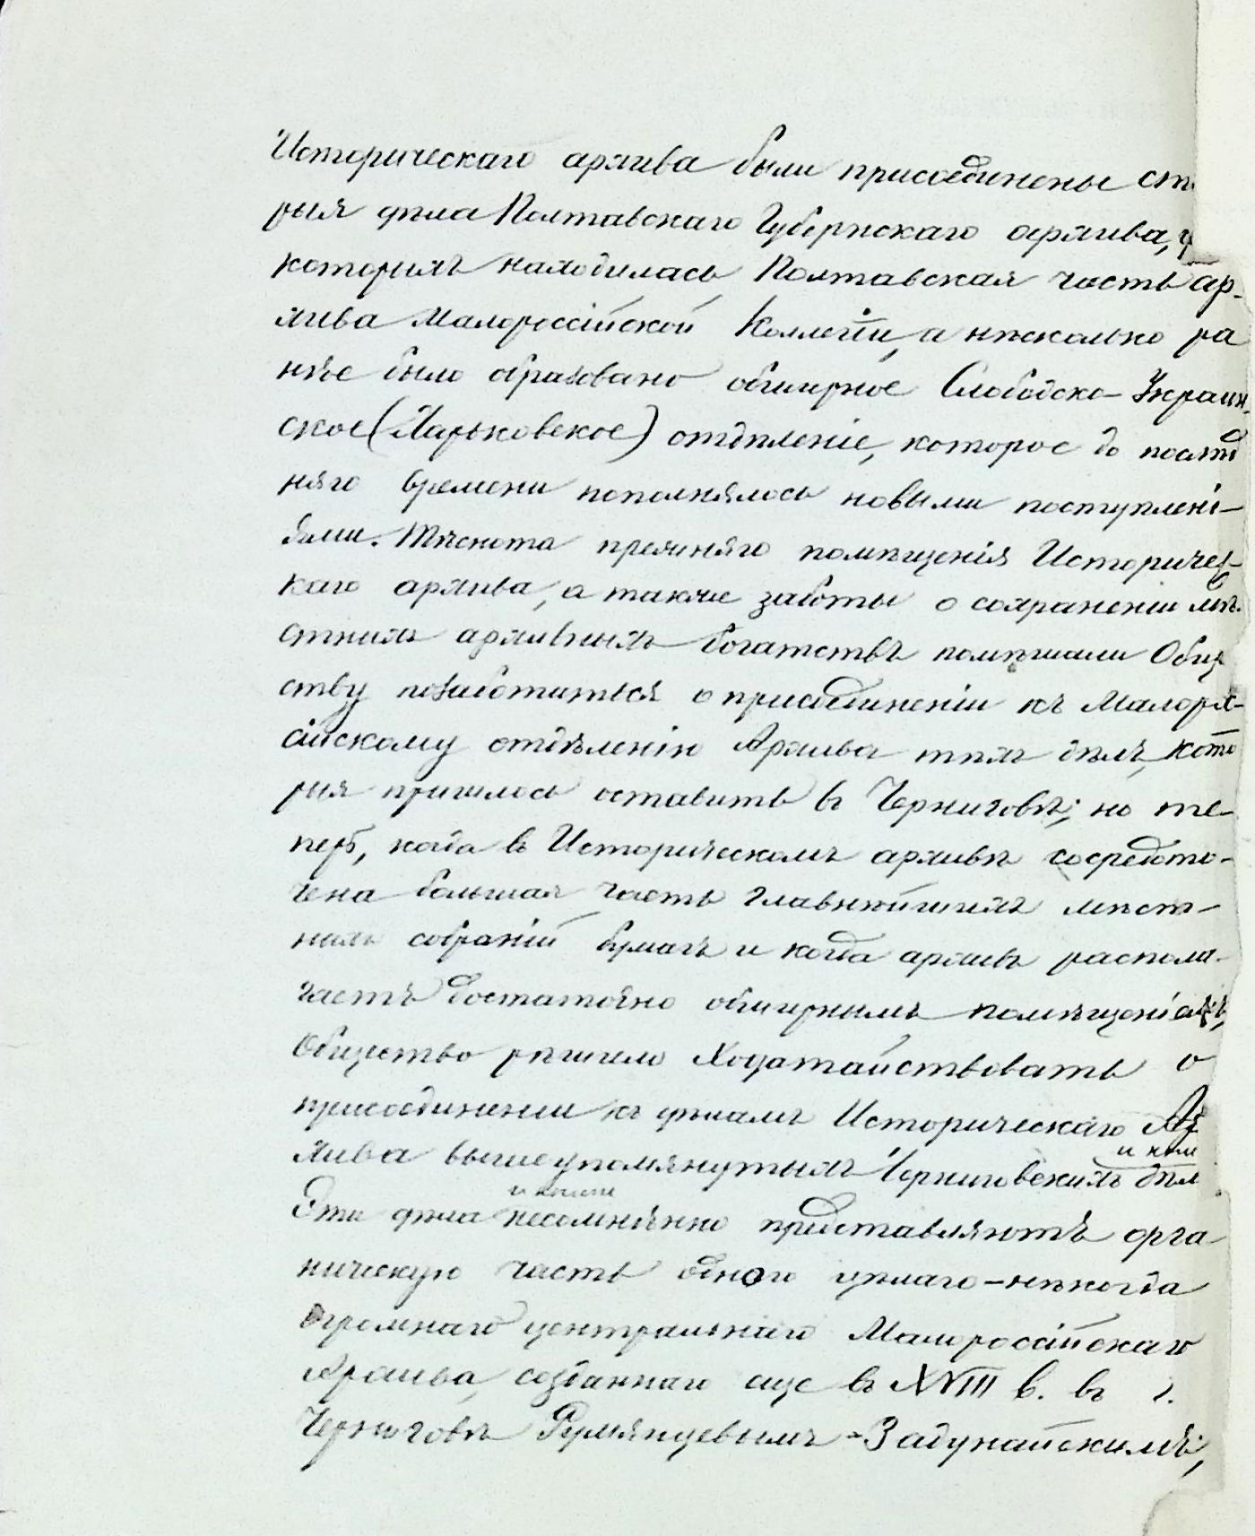 Историческаго архива были присоединены ст
рыя дѣла Полтавскаго Губернскаго архива,
которыхъ находилась Полтавская часть ар-
хива Малороссійской Коллегіи, а нѣсколько ра
нѣе было образовано обширное Слободско-Украин-
ское (Харьковское) отдѣленіе, которое до послѣд
няго времени пополнялось новыми поступлені-
ями. Тѣснота прежняго помѣщенія Историчес-
каго архива, а также заботы о сохраненіи мѣ-
стныхъ архивныхъ богатствъ помѣшали Обще
ству позаботиться о присоединеніи къ Малорос-
сійскому отдѣленію Архива тѣхъ дѣлъ, кото
рыя пришлось оставить въ Черниговѣ; но те-
перь, когда въ Историческомъ архивѣ сосредото-
чена большая часть главнѣйшихъ мѣст-
ныхъ собраній бумагъ и когда архивъ распола-
гаетъ достаточно обширнымъ помѣщеніемъ,
Общество рѣшило ходатайствовать о
присоединении къ фондамъ Историческаго Ар
хива вышеупомянутыхъ Черниговскихъ дѣл
Эти дѣла несомнѣнно представляютъ орга-
ническую часть одного цѣлаго - нѣкогда
огромнаго центральнаго Малороссійскаго
Архива, созданнаго еще въ XVIII в. въ г.
Черниговѣ Румянцевымъ-Задунайскимъ,